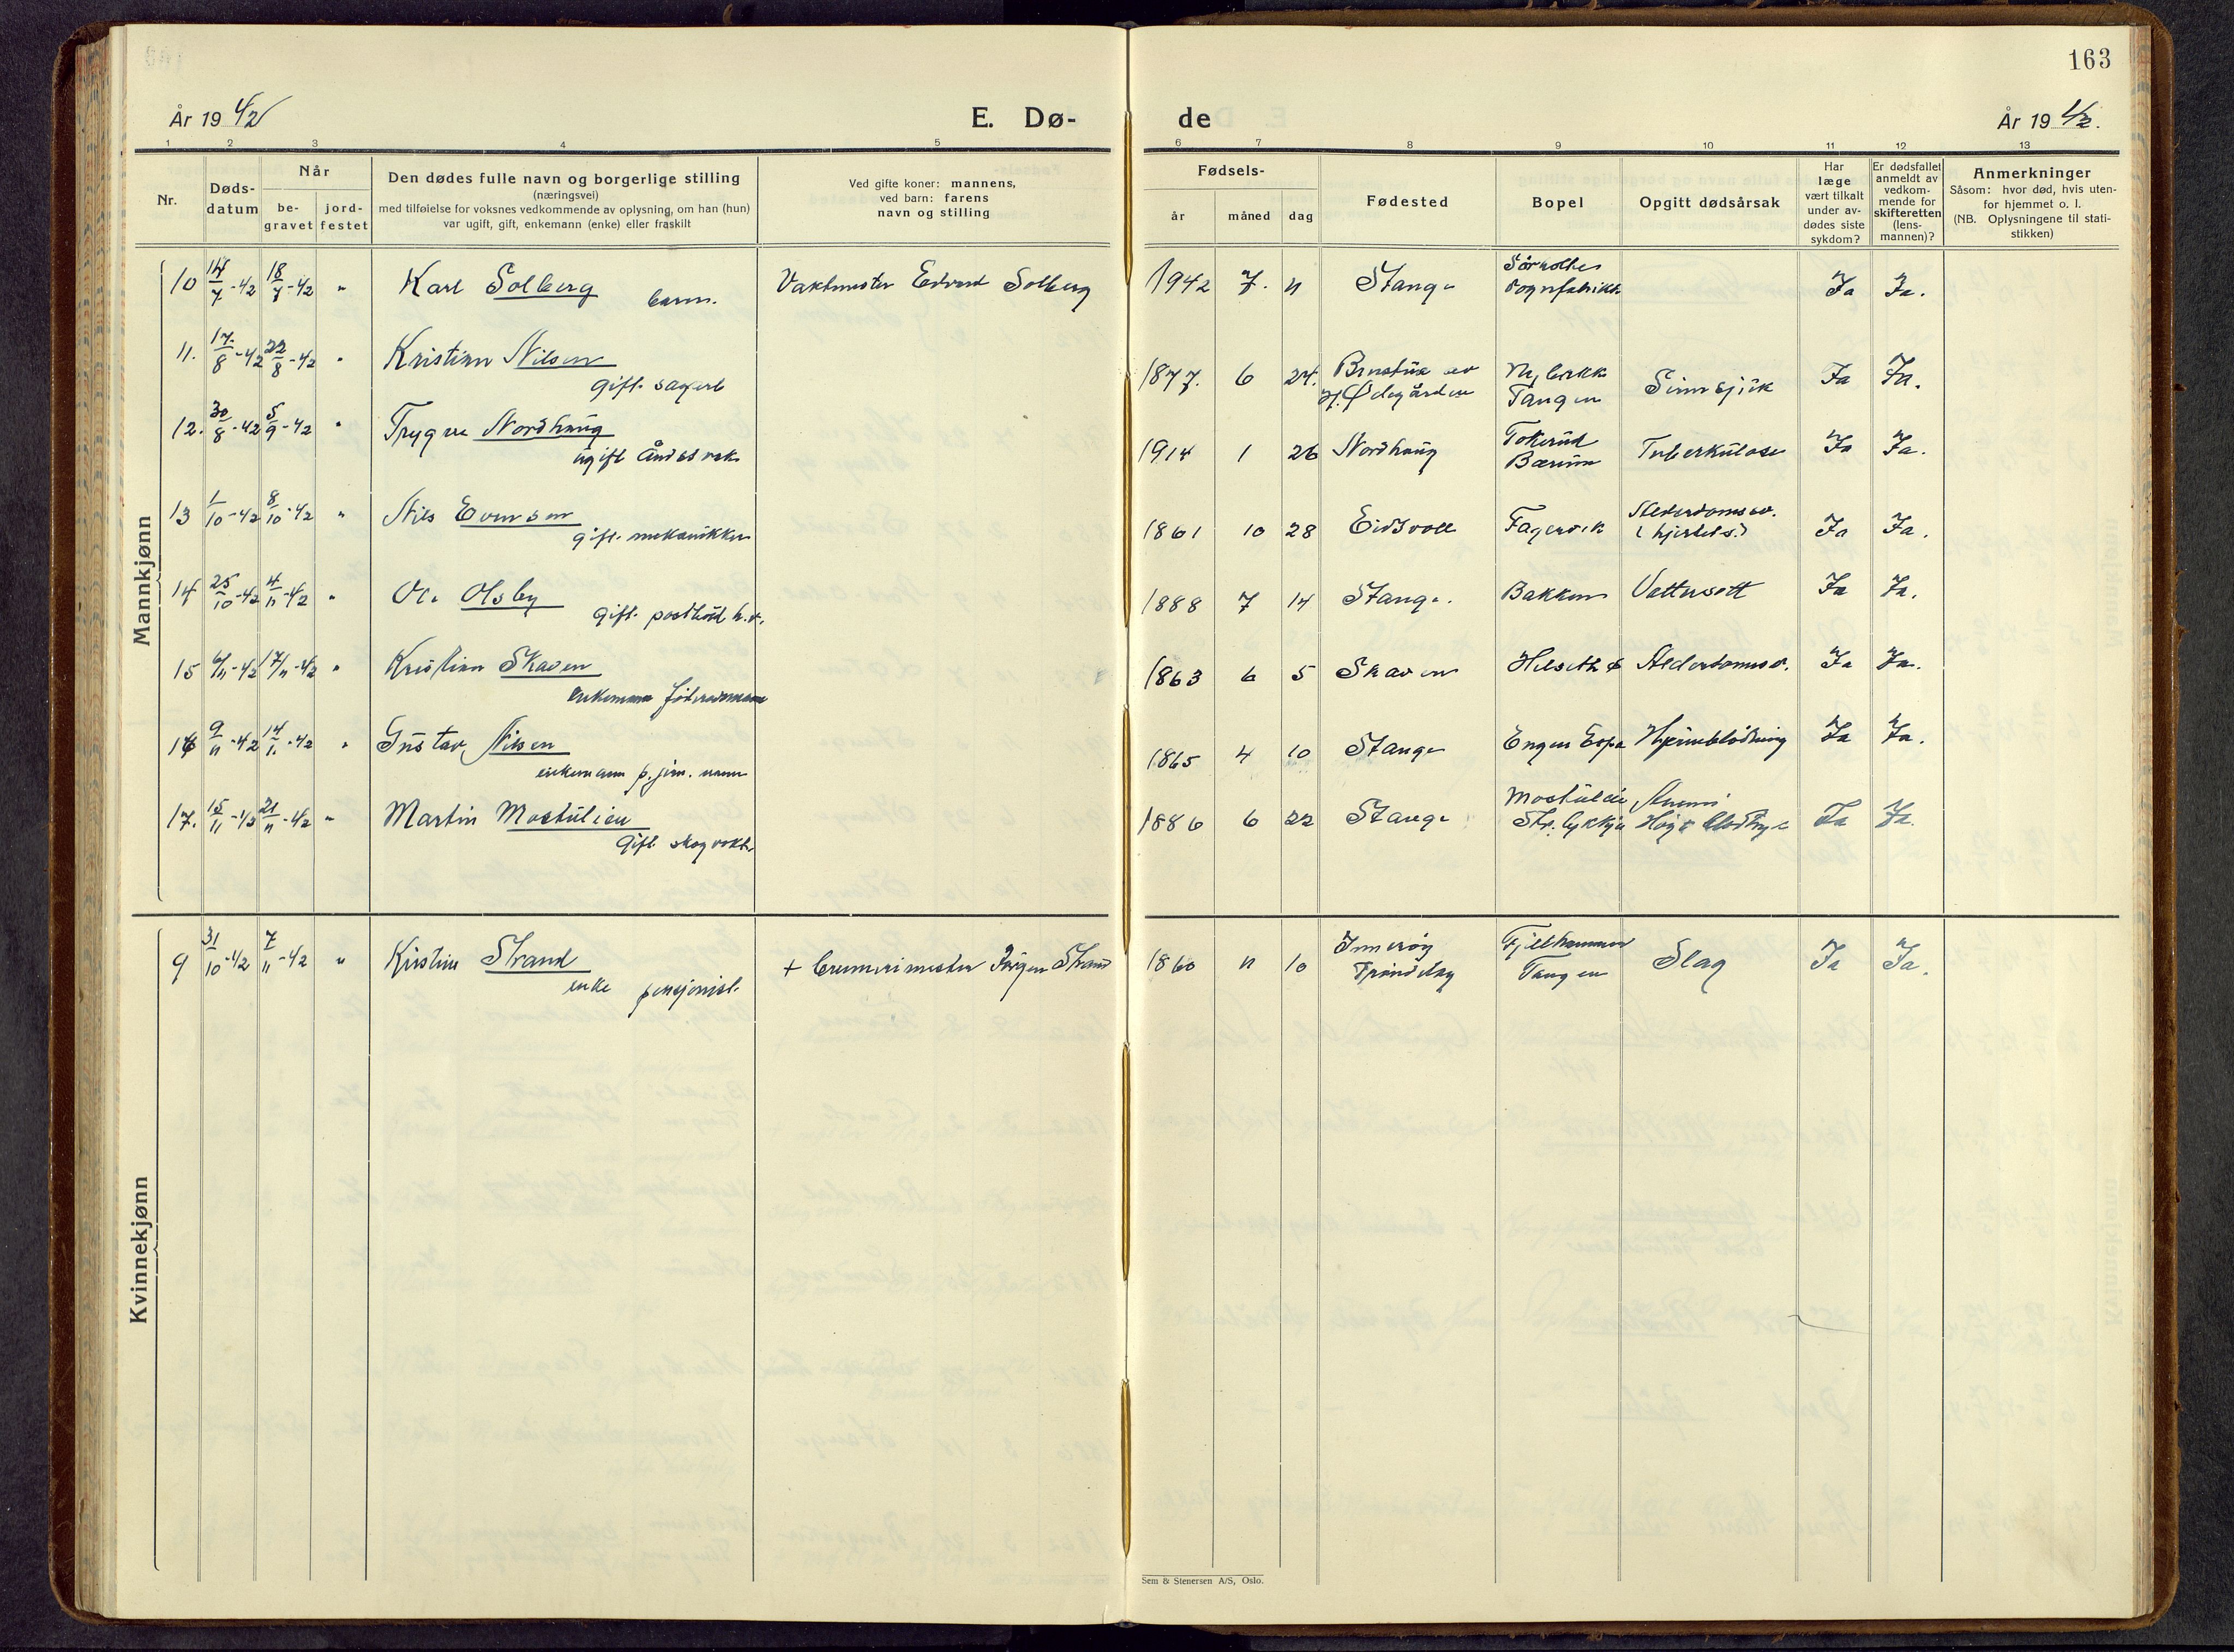 163
År 19 42
E. Dø-
de
År 19 42.
1 2 3 4 5 6 7 8 9 10 11 12 13
Nr.
Døds-
datum
Når
be-
gravet
jord-
festet
Den dødes fulle navn og borgerlige stilling
(næringsvei)
med tilføielse for voksnes vedkommende av oplysning, om han (hun)
var ugift, gift, enkemann (enke) eller fraskilt
Ved gifte koner: mannens,
ved barn: farens
navn og stilling
Fødsels-
år
måned
dag
Fødested
Bopel
Opgitt dødsårsak
Har
læge
vært tilkalt
under av-
dødes siste
sykdom?
Er dødsfallet
anmeldt av
vedkom-
mende for
skifteretten
(lens-
mannen)?
Anmerkninger
Såsom: hvor død, hvis uten-
for hjemmet o. l.
(NB. Oplysningene til stati-
stikken)
Mannkjønn
10 14/7-42 18/7-42 " Karl Solberg barn. Vaktmester Edvard Solberg 1942 7. 11 Stange Ja Ja.
11. 17/8-42 22/8-42 " Kristian Nilsen 1877. 6 24. Ødegården Tangen Sinnsjuk Ja Ja.
gift. sagarb
12. 30/8-42 5/9-42 " Trygve Nordhaug 1914 1 26 Nordhaug Tokerud Tuberkulose Ja Ja.
ugift Bærum
13 1/10-42 8/10-42 " Nils Evensen 1861 10 28 Eidsvoll Fagervik Alderdomssv. Ja Ja.
gift. mekanikker (hjertets.)
14 25/10-42 4/11-42 " Ole Olsby 1888 7 14 Stange. Bakken Vattersott Ja Ja.
gift. postbud h.v.
15 6/11-42 17/11-42 " Kristian Skaven 1863 6 5 Skaven Helseth Alderdomssv. Ja Ja.
enkemann föderådsmann
16 9/11-42 14/11-42 " Gustav Nilsen 1865 4 10 Stange Engen Espa Hjerneblödning Ja Ja.
enkemann
17. 15/11-42 21/11-42 " Martin Mostulien 1886 6 22 Stange Mostulien Anemi Ja Ja.
gift skogvokt.
Kvinnekjønn
9 31/10-42 7/11-42 " Kirstine Strand + Jörgen Strand 1860 11 10 Inneröy Fjellhammer Slag Ja Ja.
enke pensjonist. Tröndelag Tangen
Sem & Stenersen A/S, Oslo.